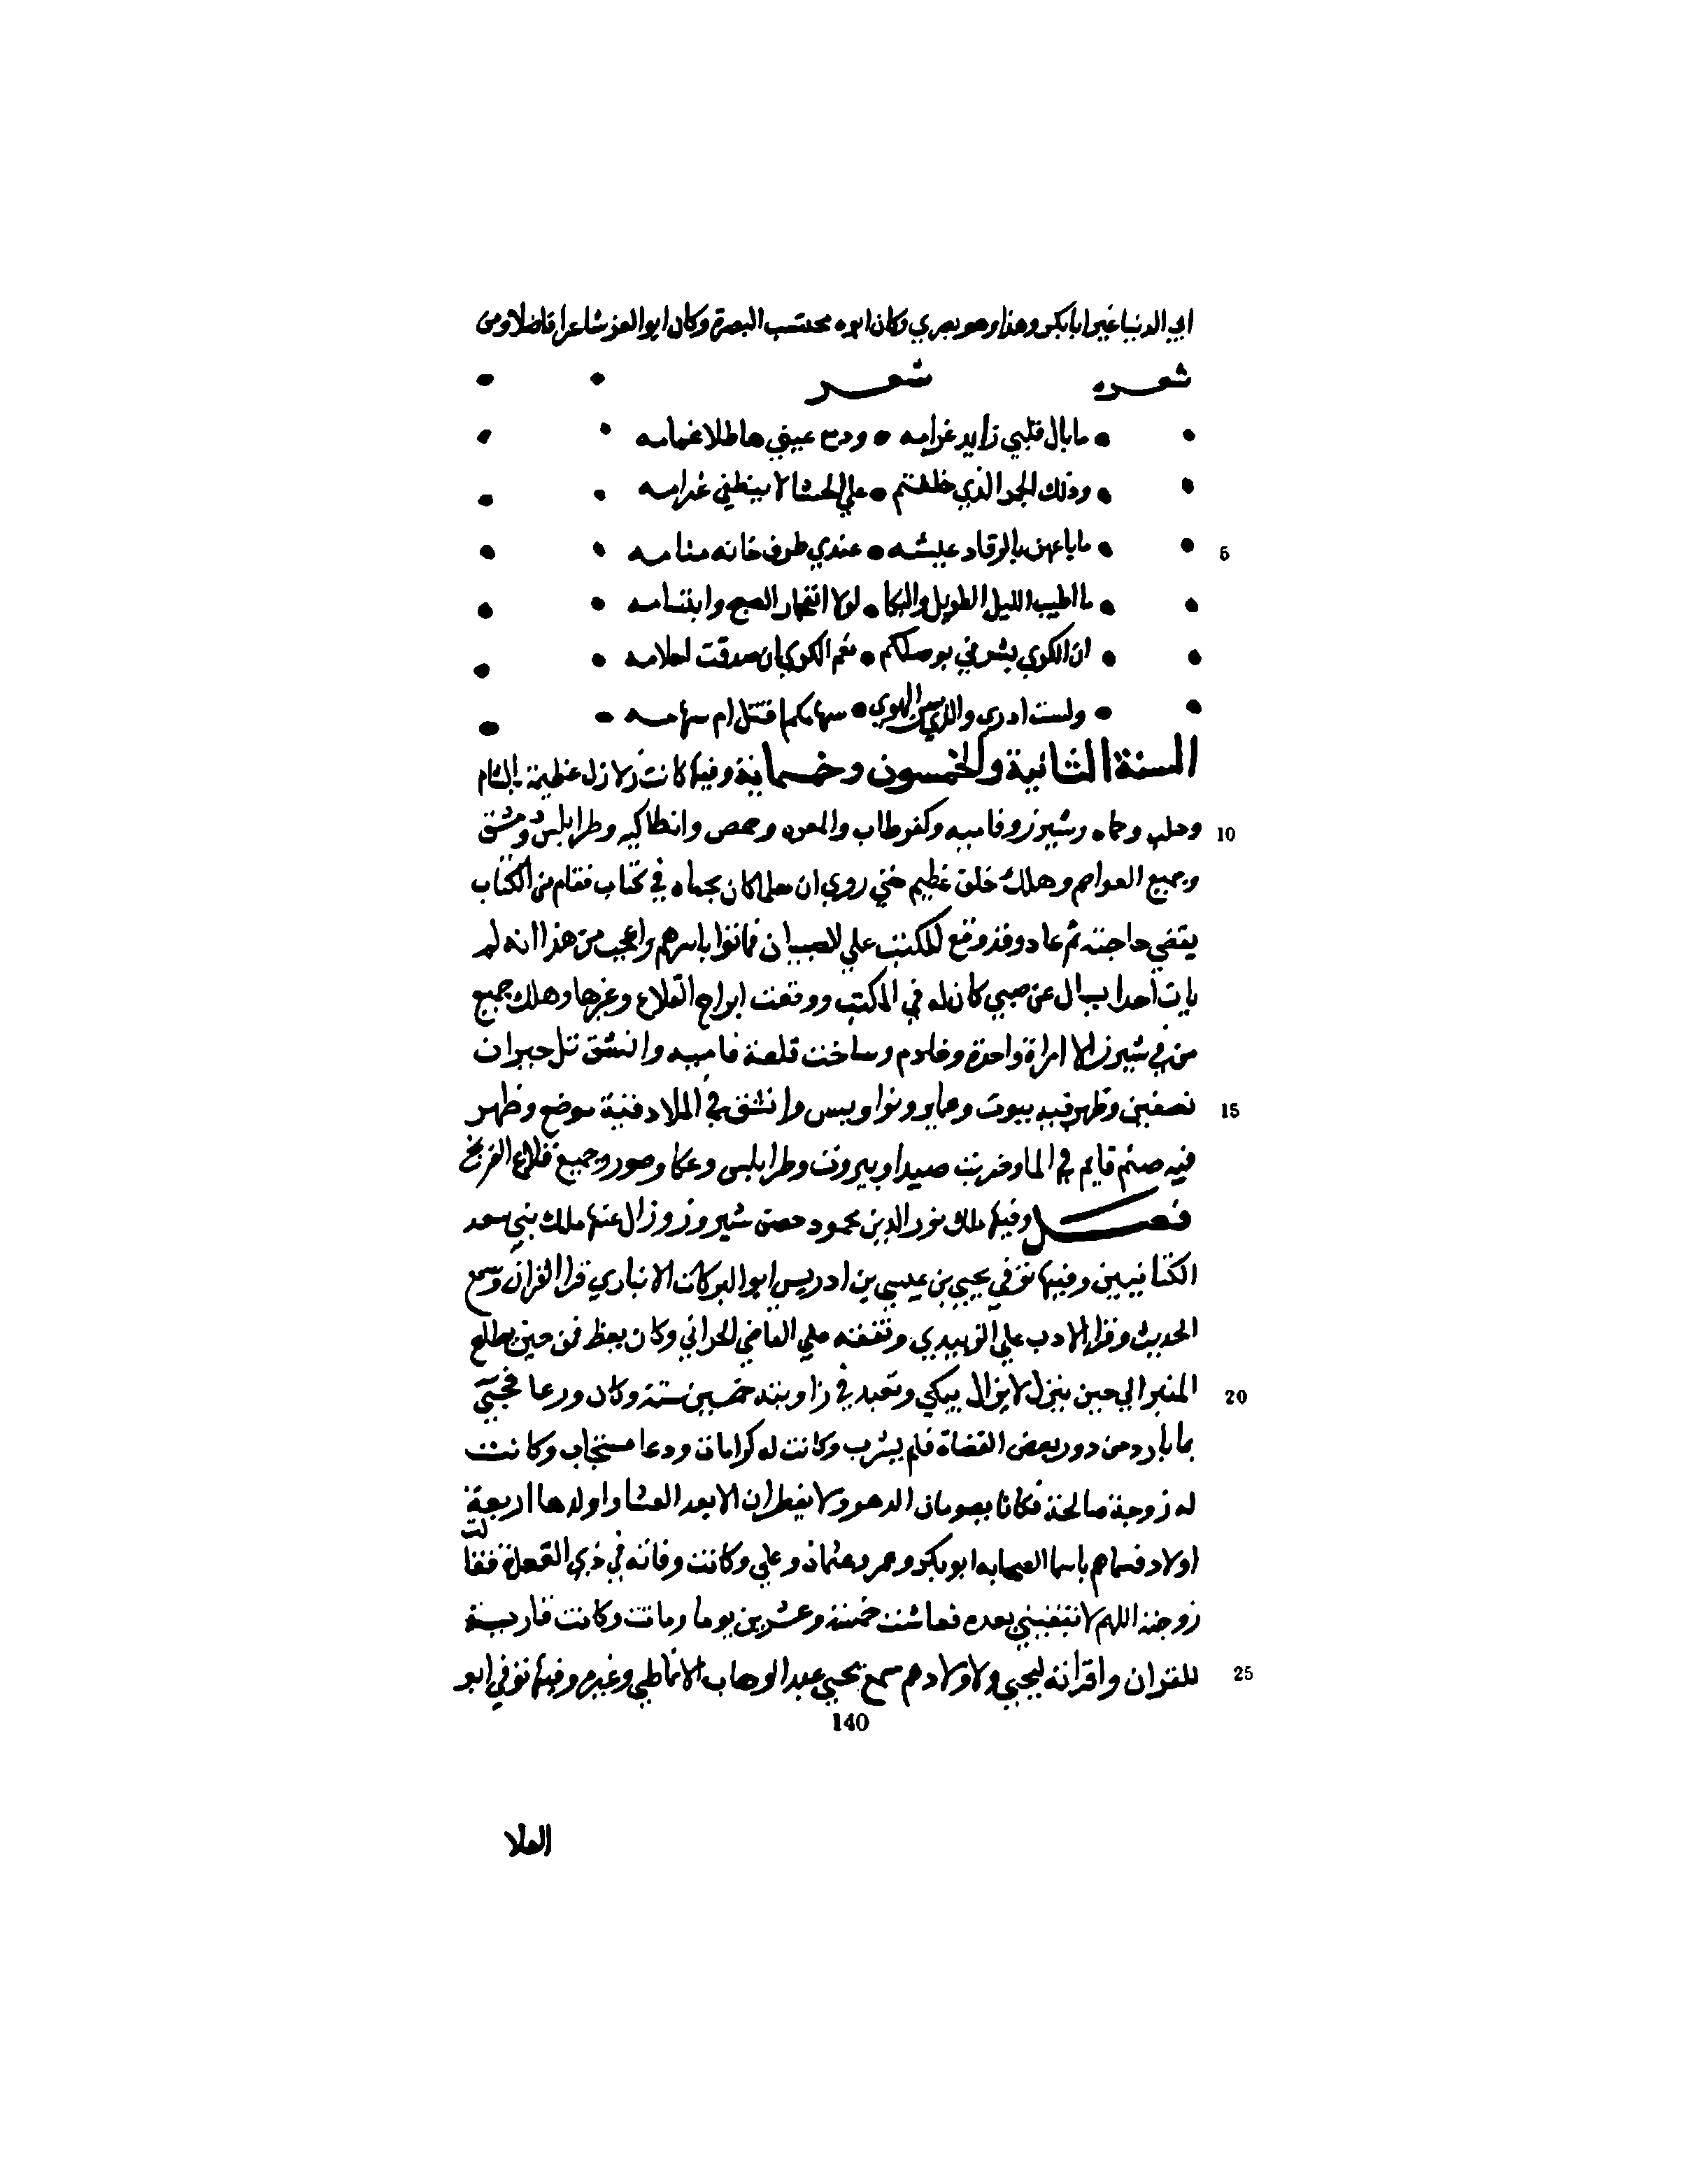 ابي الدنيا غير ابا بكر وهذا وهو بصري وكان ابوه محتسب البصرة وكان ابو العز شاعرا فاضلا ومن
شعره شعر
• ما بال قلبي زايد غرامه • ودمع عيني هاطلا غمامه
• وذلك الجمر الذي خلفتم • علي الحشا لا ينطفي غرامه
5 • عندي طرف خانه منامه
• ما اطيب الليل الطويل والبكا • لولا انفجار الصبح وابتسامه
• ان الكري بشرني بوصلكم • نعم الكري ان صدقت احلامه
• ولست ادري والذي الهوي • سهامكم اقتل ام سهامه
السنة الثانية والخمسون وخمسماية وفيها كانت زلازل عظيمة بالشام
10 وحلب وحماه وشيزر وفاميه وكفرطاب والمعره وحمص وانطاكيه وطرابلس ودمشق
وجميع العواصم وهلك خلق عظيم حتي روي ان معلما كان بحماه في كتاب فقام من الكتاب
يقضي حاجته ثم عاد وقد وقع المكتب علي الصبيان فماتوا باسرهم واعجب من هذا انه لم
يات احدا يسال عن صبي كان له في المكتب ووقعت ابراج القلاع وغيرها وهلك جميع
من في شيزر الا امراة واحدة وخادم وساخت قلعة فاميه وانشق تل حران
15 نصفين وظهر فيه بيوت وعماير ونواويس وانشق في اللاذقية موضع وظهر
فيه صنم قايم في الما وخربت صيدا وبيروت وطرابلس وعكا وصور وجميع قلاع الفرنج
فصل وفيها ملك نور الدين محمود حصن شيزر وزال عنها ملك بني سعد
الكنانيين وفيها توفي يحيي بن عيسي بن ادريس ابو البركات الانباري قرا القران وسمع
الحديث وقرا الادب علي الزبيدي وتفقه علي القاضي الحراني وكان يعظ فمن حين يطلع
20 المنبر الي حين ينزل لا يزال يبكي وتعبد في زاويته خمسين سنة وكان ورعا فجيئ
بما بارد من دور بعض القضاة فلم يشرب وكانت له كرامات ودعا مستجاب وكانت
له زوجة صالحة فكانا يصومان الدهر ولا يفطران الا بعد العشا واولدها اربعة
اولاد فسماهم باسما الصحابه ابو بكر وعمر وعثمان وعلي وكانت وفاته في ذي القعدة فقالت
زوجته اللهم لا تبقيني بعده فعاشت خمسة وعشرين يوما وماتت وكانت قاريـة
25 للقران واقراته ليحيي ولاولادهم سمع يحيي عبد الوهاب الانماطي وغيره وفيها توفي ابو
140
العلا